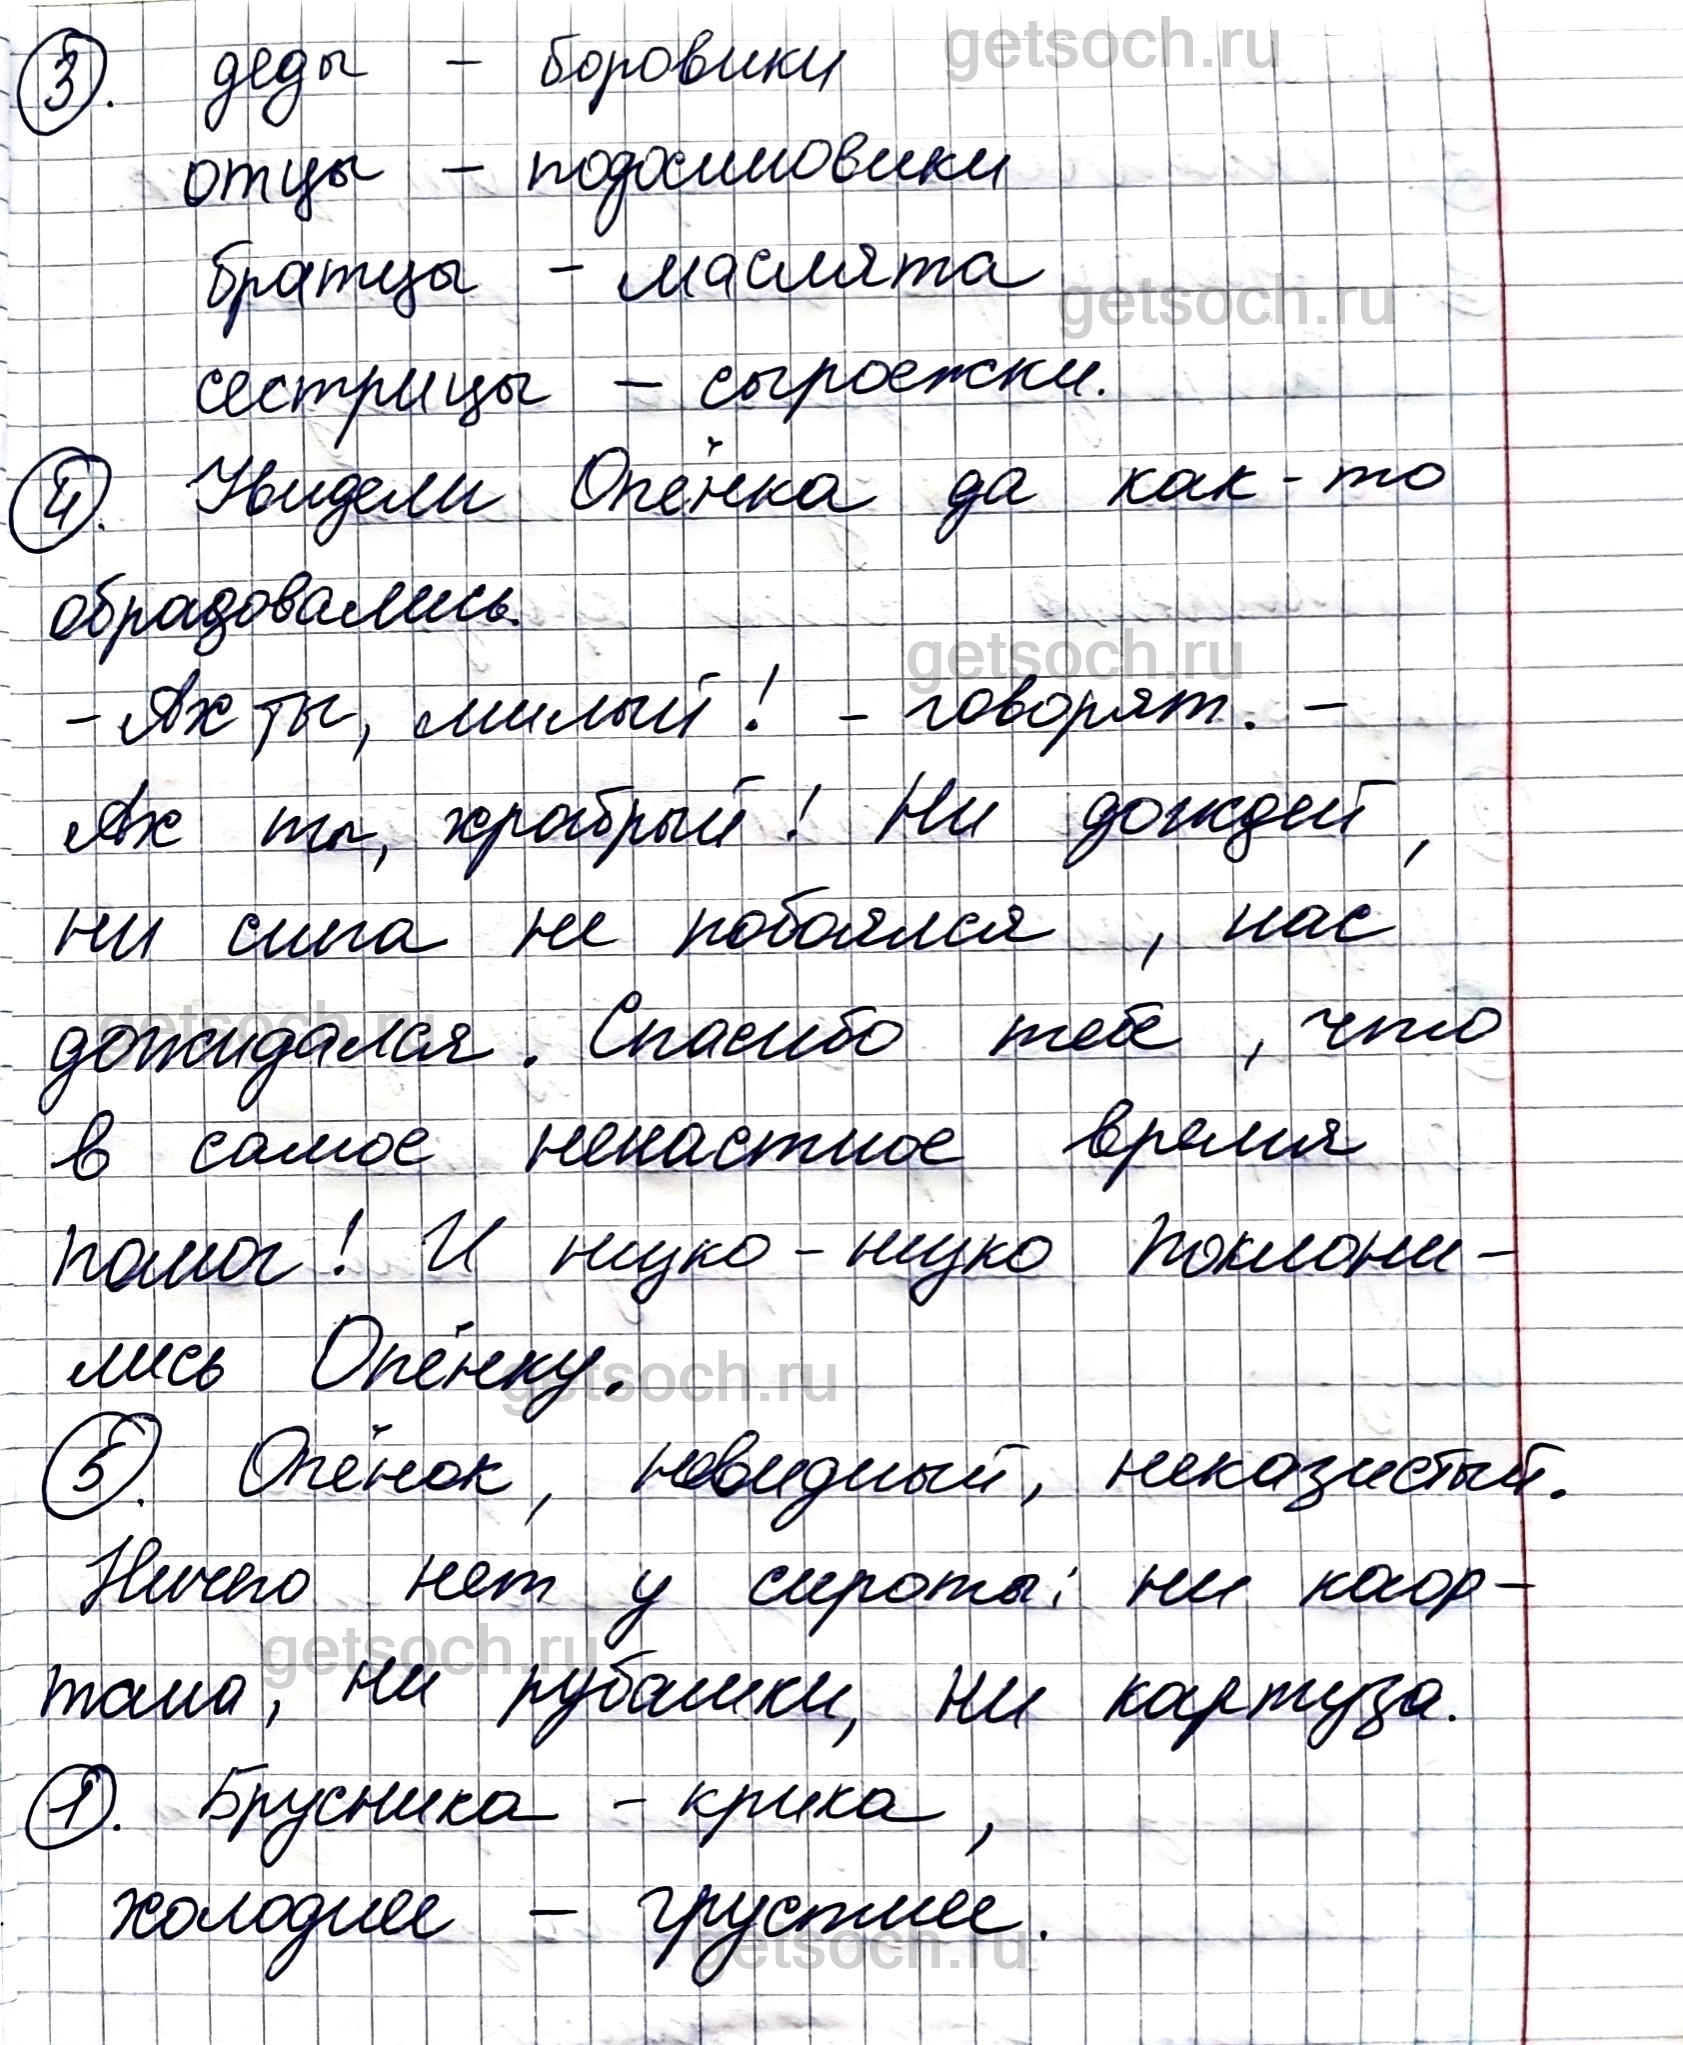 ③. деды - боровики
отцы - подосиновики
братцы - маслята
сестрицы - сыроежки.
④. Увидели Опёнка да как-то
обрадовались.
- Ах ты, милый! - говорят. -
Ах ты, храбрый! Ни дождей,
ни снега не побоялся, нас
дожидался. Спасибо тебе, что
в самое ненастное время
помог! И низко-низко поклони-
лись Опёнку.
⑤. Опёнок, невидный, неказистый.
Ничего нет у сироты: ни каф-
тана, ни рубашки, ни картуза.
①. Брусника - крика,
холоднее - грустнее.
getsoch.ru
getsoch.ru
getsoch.ru
getsoch.ru
getsoch.ru
getsoch.ru
getsoch.ru